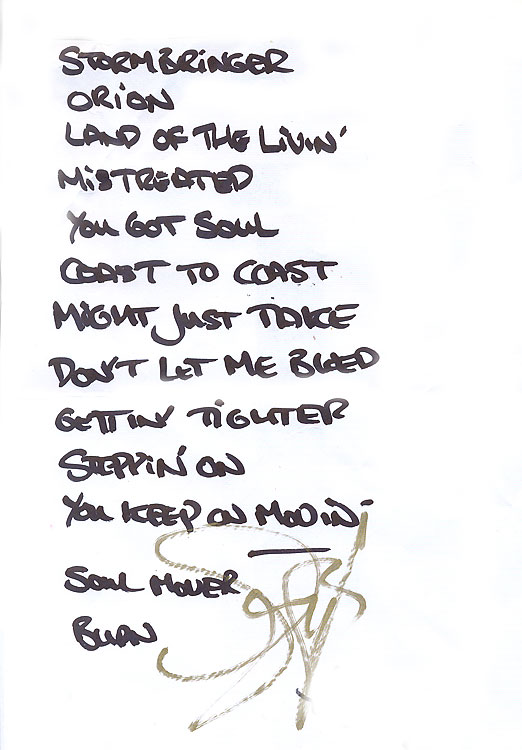 STORMBRiNGER
ORiON
LAND OF THE LiViN'
MiSTREATED
YOU GOT SOUL
COAST TO COAST
MiGHT JUST TAKE
DON'T LET ME BLEED
GETTiN' TiGHTER
STEPPiN' ON
YOU KEEP ON MOViN'
SOUL MOVER
BURN